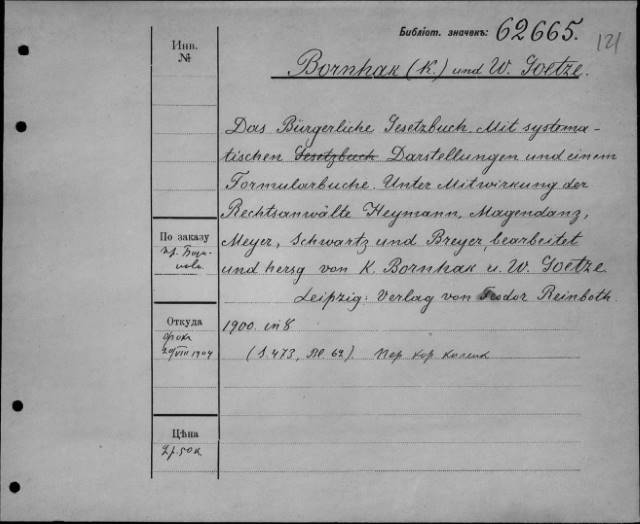 Библіот. значекъ: 62665.
121
Инв.
№
Bornhak (K.) und W. Goetze.
Das Bürgerliche Gesetzbuch. Mit systema-
tischen Gesetzbuch Darstellungen und einem
Formularbuche. Unter Mitwirkung der
Rechtsanwälte Heymann, Magendanz,
Meyer, Schwartz und Breyer, bearbeitet
und hersg von K. Bornhak u. W. Goetze
Leipzig: Verlag von Teodor Reinboth.
По заказу
Откуда
20/VIII 1904
1900. in 8
(S. 473, 62).
Цѣна
2р.50к